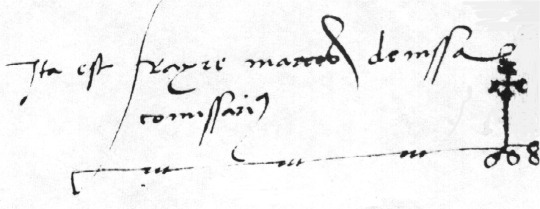 Ita est frayre marcos de nissa
comissari9